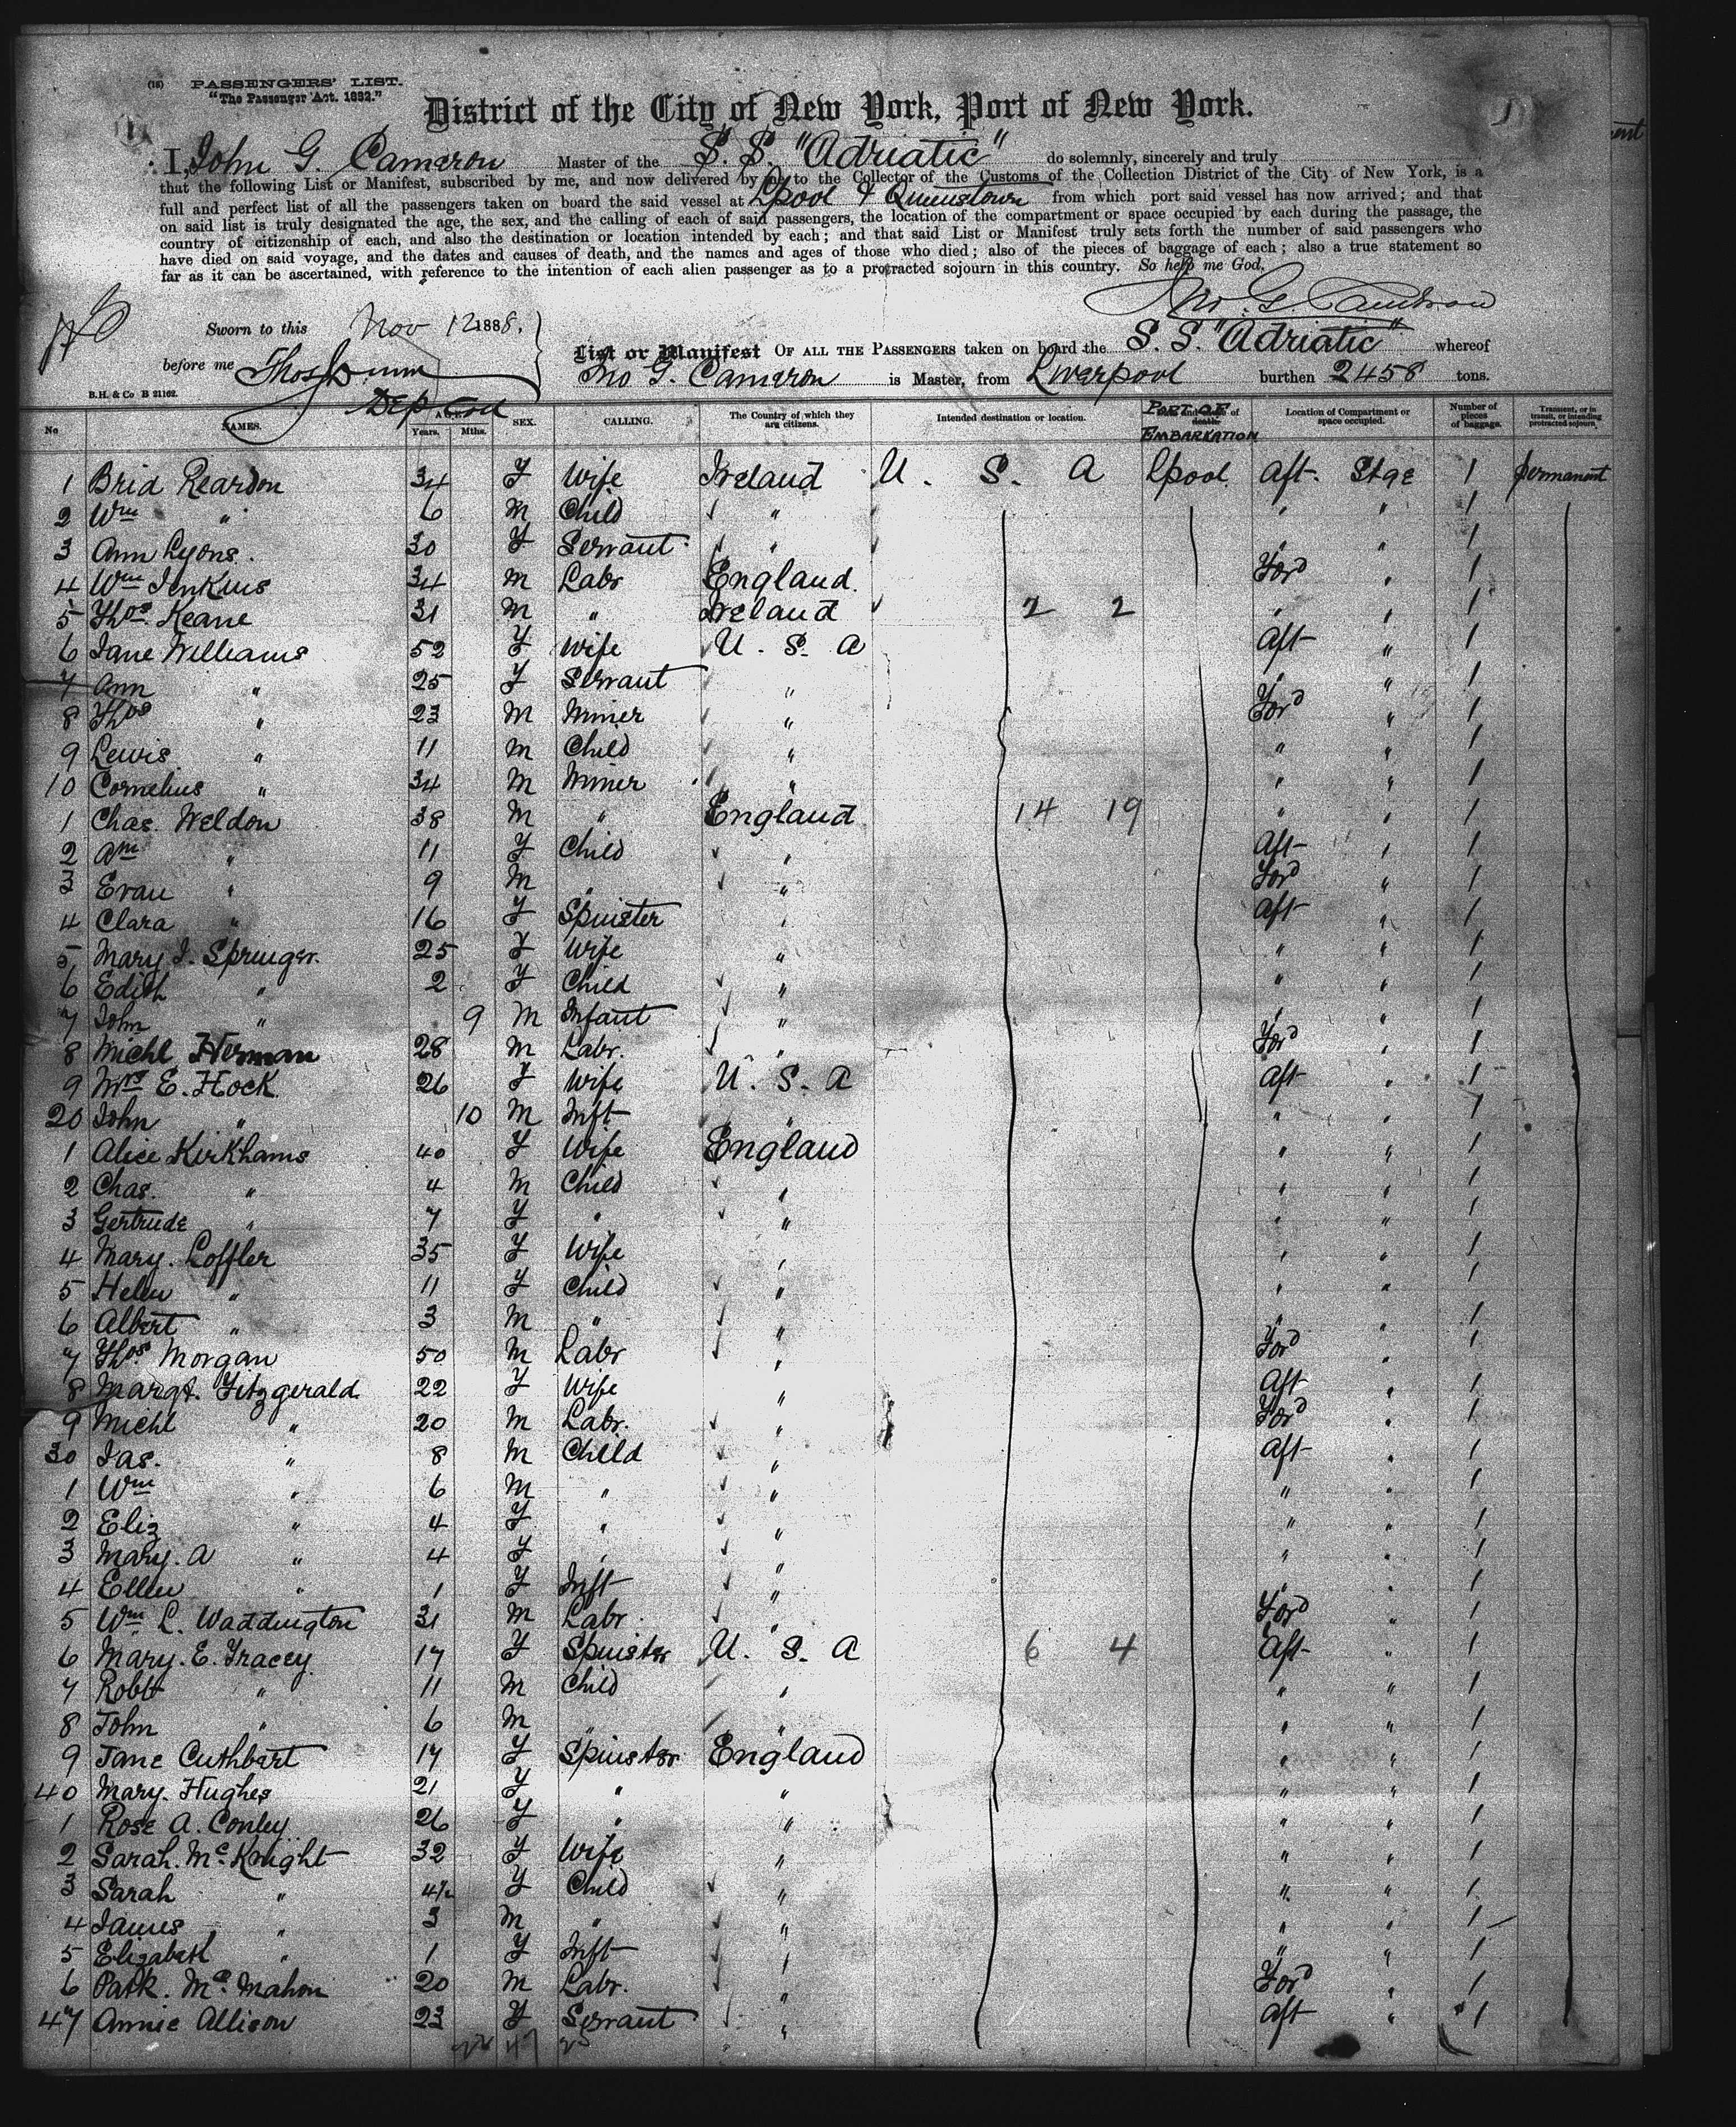 (18) PASSENGERS' LIST.
"The Passenger Act. 1882."
District of the City of New York, Port of New York.
I, John G. Cameron Master of the S. S. "Adriatic" do solemnly, sincerely and truly
that the following List or Manifest, subscribed by me, and now delivered by me to the Collector of the Customs of the Collection District of the City of New York, is a
full and perfect list of all the passengers taken on board the said vessel at Lpool & Queenstown from which port said vessel has now arrived; and that
on said list is truly designated the age, the sex, and the calling of each of said passengers, the location of the compartment or space occupied by each during the passage, the
country of citizenship of each, and also the destination or location intended by each; and that said List or Manifest truly sets forth the number of said passengers who
have died on said voyage, and the dates and causes of death, and the names and ages of those who died; also of the pieces of baggage of each; also a true statement so
far as it can be ascertained, with reference to the intention of each alien passenger as to a protracted sojourn in this country. So help me God.
Jno. G. Cameron
Sworn to this Nov 12 1888,
before me Thos Dunn
Dep Coll
List or Manifest OF ALL THE PASSENGERS taken on board the S. S. "Adriatic" whereof
Jno G. Cameron is Master, from Liverpool burthen 2458 tons.
B.H. & Co B 21162.
No NAMES. AGE. Years. Mths. SEX. CALLING. The Country of which they are citizens. Intended destination or location. PORT OF EMBARKATION Location of Compartment or space occupied. Number of pieces of baggage. Transient, or in transit, or intending protracted sojourn
1 Brid Reardon 34 F Wife Ireland U. S. A Lpool Aft. Stge 1 permanent
2 Wm " 6 M Child " " " 1
3 Ann Lyons. 30 F Servant " " " 1
4 Wm Jenkins 34 M Labr England. Ford " 1
5 Thos Keane 31 M " Ireland 2 2 " " 1
6 Jane Williams 52 F Wife U. S. A Aft " 1
7 Ann " 25 F Servant " " " 1
8 Thos " 23 M Miner " Ford " 1
9 Lewis " 11 M Child " " " 1
10 Cornelius " 34 M Miner " " " 1
1 Chas. Weldon 38 M " England 14 19 " " 1
2 Am " 11 F Child " Aft " 1
3 Evan " 9 M " " Ford " 1
4 Clara " 16 F Spinster " Aft " 1
5 Mary J. Springer. 25 F Wife " " " 1
6 Edith " 2 F Child " " " 1
7 John " 9 M Infant " " " 1
8 Michl Herman 28 M Labr. " Ford " 1
9 Mrs E. Hock 26 F Wife U. S. A Aft " 1
20 John " 10 M Inft " " " 1
1 Alice Kirkhams 40 F Wife England " " 1
2 Chas. " 4 M Child " " " 1
3 Gertrude " 7 F " " " " 1
4 Mary. Loffler 35 F Wife " " " 1
5 Helen " 11 F Child " " " 1
6 Albert " 3 M " " " " 1
7 Thos. Morgan 50 M Labr " Ford " 1
8 Margt. Fitzgerald 22 F Wife " Aft " 1
9 Michl " 20 M Labr. " Ford " 1
30 Jas. " 8 M Child " Aft " 1
1 Wm " 6 M " " " " 1
2 Eliz " 4 F " " " " 1
3 Mary. A " 4 F " " " " 1
4 Ellen " 1 F Inft " " " 1
5 Wm L. Waddington 31 M Labr. " Ford " 1
6 Mary. E. Tracey 17 F Spinster U. S. A 6 4 Aft " 1
7 Robt " 11 M Child " " " 1
8 John " 6 M " " " " 1
9 Jane Cuthbert 17 F Spinster England " " 1
40 Mary. Hughes 21 F " " " " 1
1 Rose A. Conley 26 F " " " " 1
2 Sarah. McKnight 32 F Wife " " " 1
3 Sarah " 4½ F Child " " " 1
4 James " 3 M " " " " 1
5 Elizabeth " 1 F Inft " " " 1
6 Patk. McMahon 20 M Labr. " Ford " 1
47 Annie Allison 23 F Servant " Aft " 1